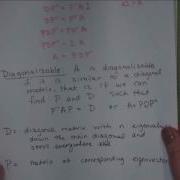 DP⁻¹ = P⁻¹A
PDP⁻¹ = A
A = PDP⁻¹
Diagonalizable: A is diagonalizable
if it is similar to a diagonal
matrix, that is if we can
find P and D such that
P⁻¹AP = D or A = PDP⁻¹
D = diagonal matrix with n eigenvalues
down the main diagonal and
zeros everywhere else
P = matrix of corresponding eigenvectors